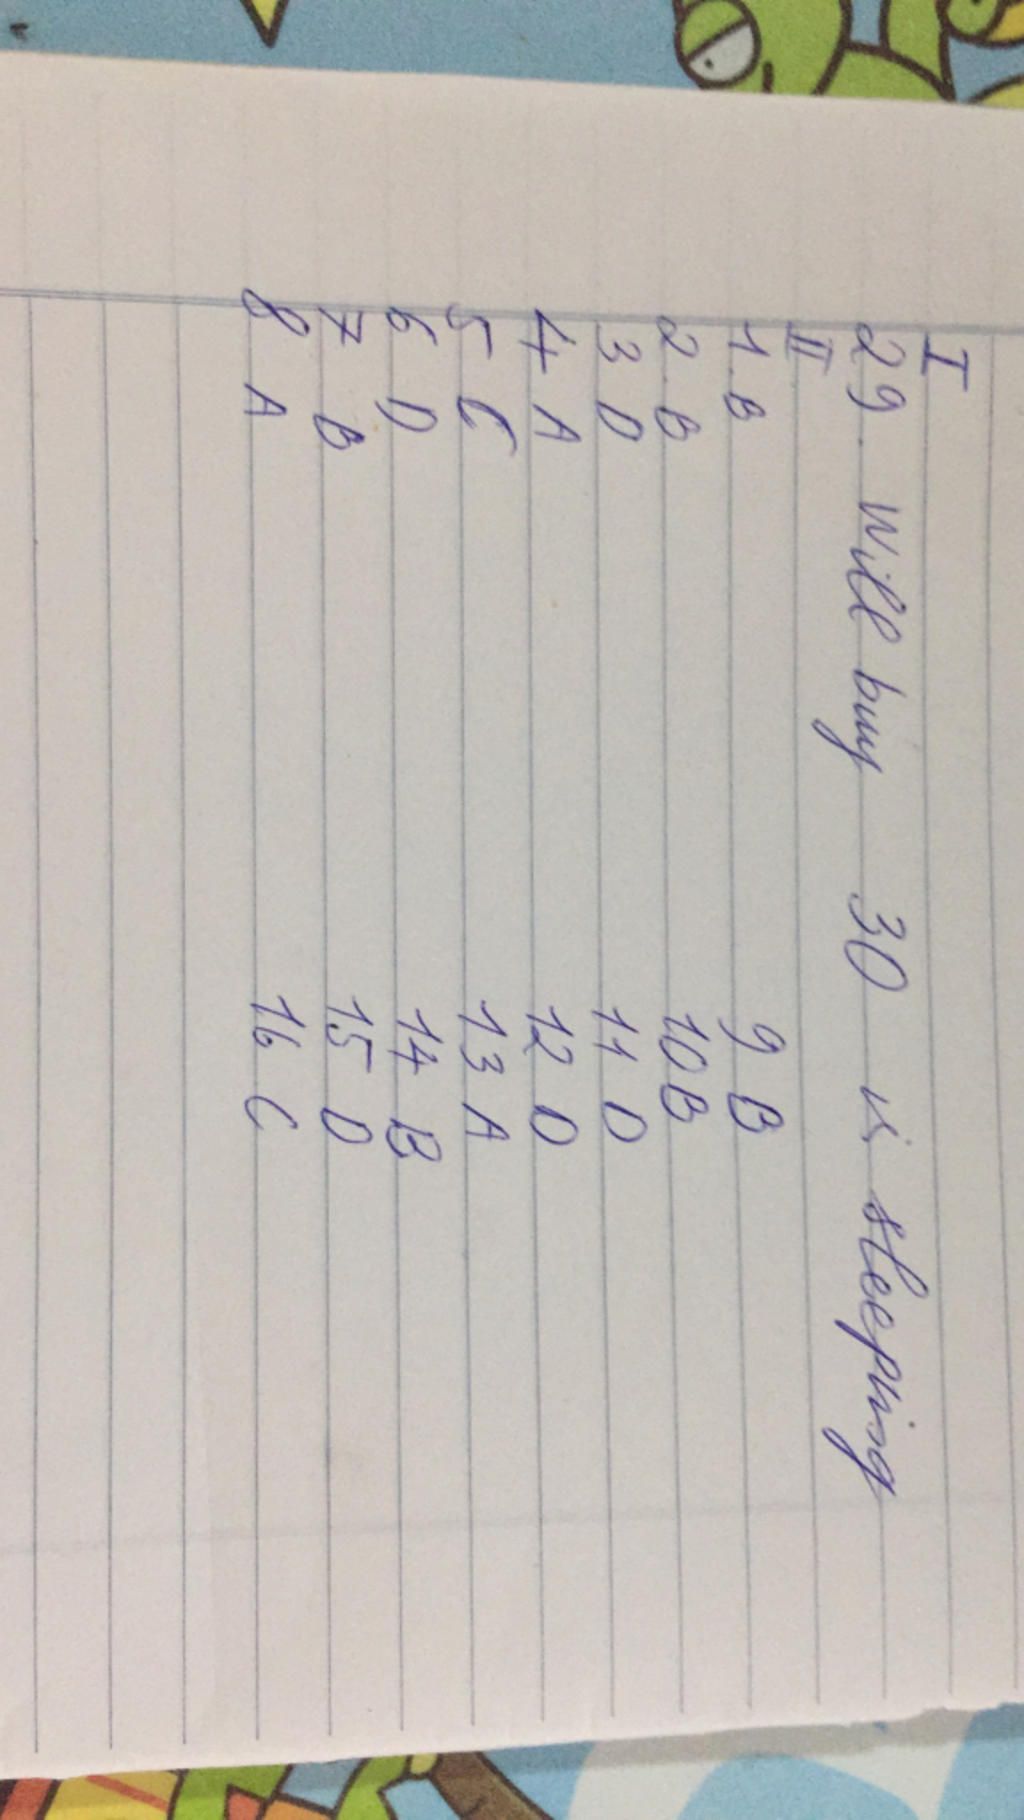 I
29. will buy 30 is sleeping
II
1. B 9 B
2. B 10 B
3 D 11 D
4 A 12 D
5 C 13 A
6 D 14 B
7 B 15 D
8 A 16 C